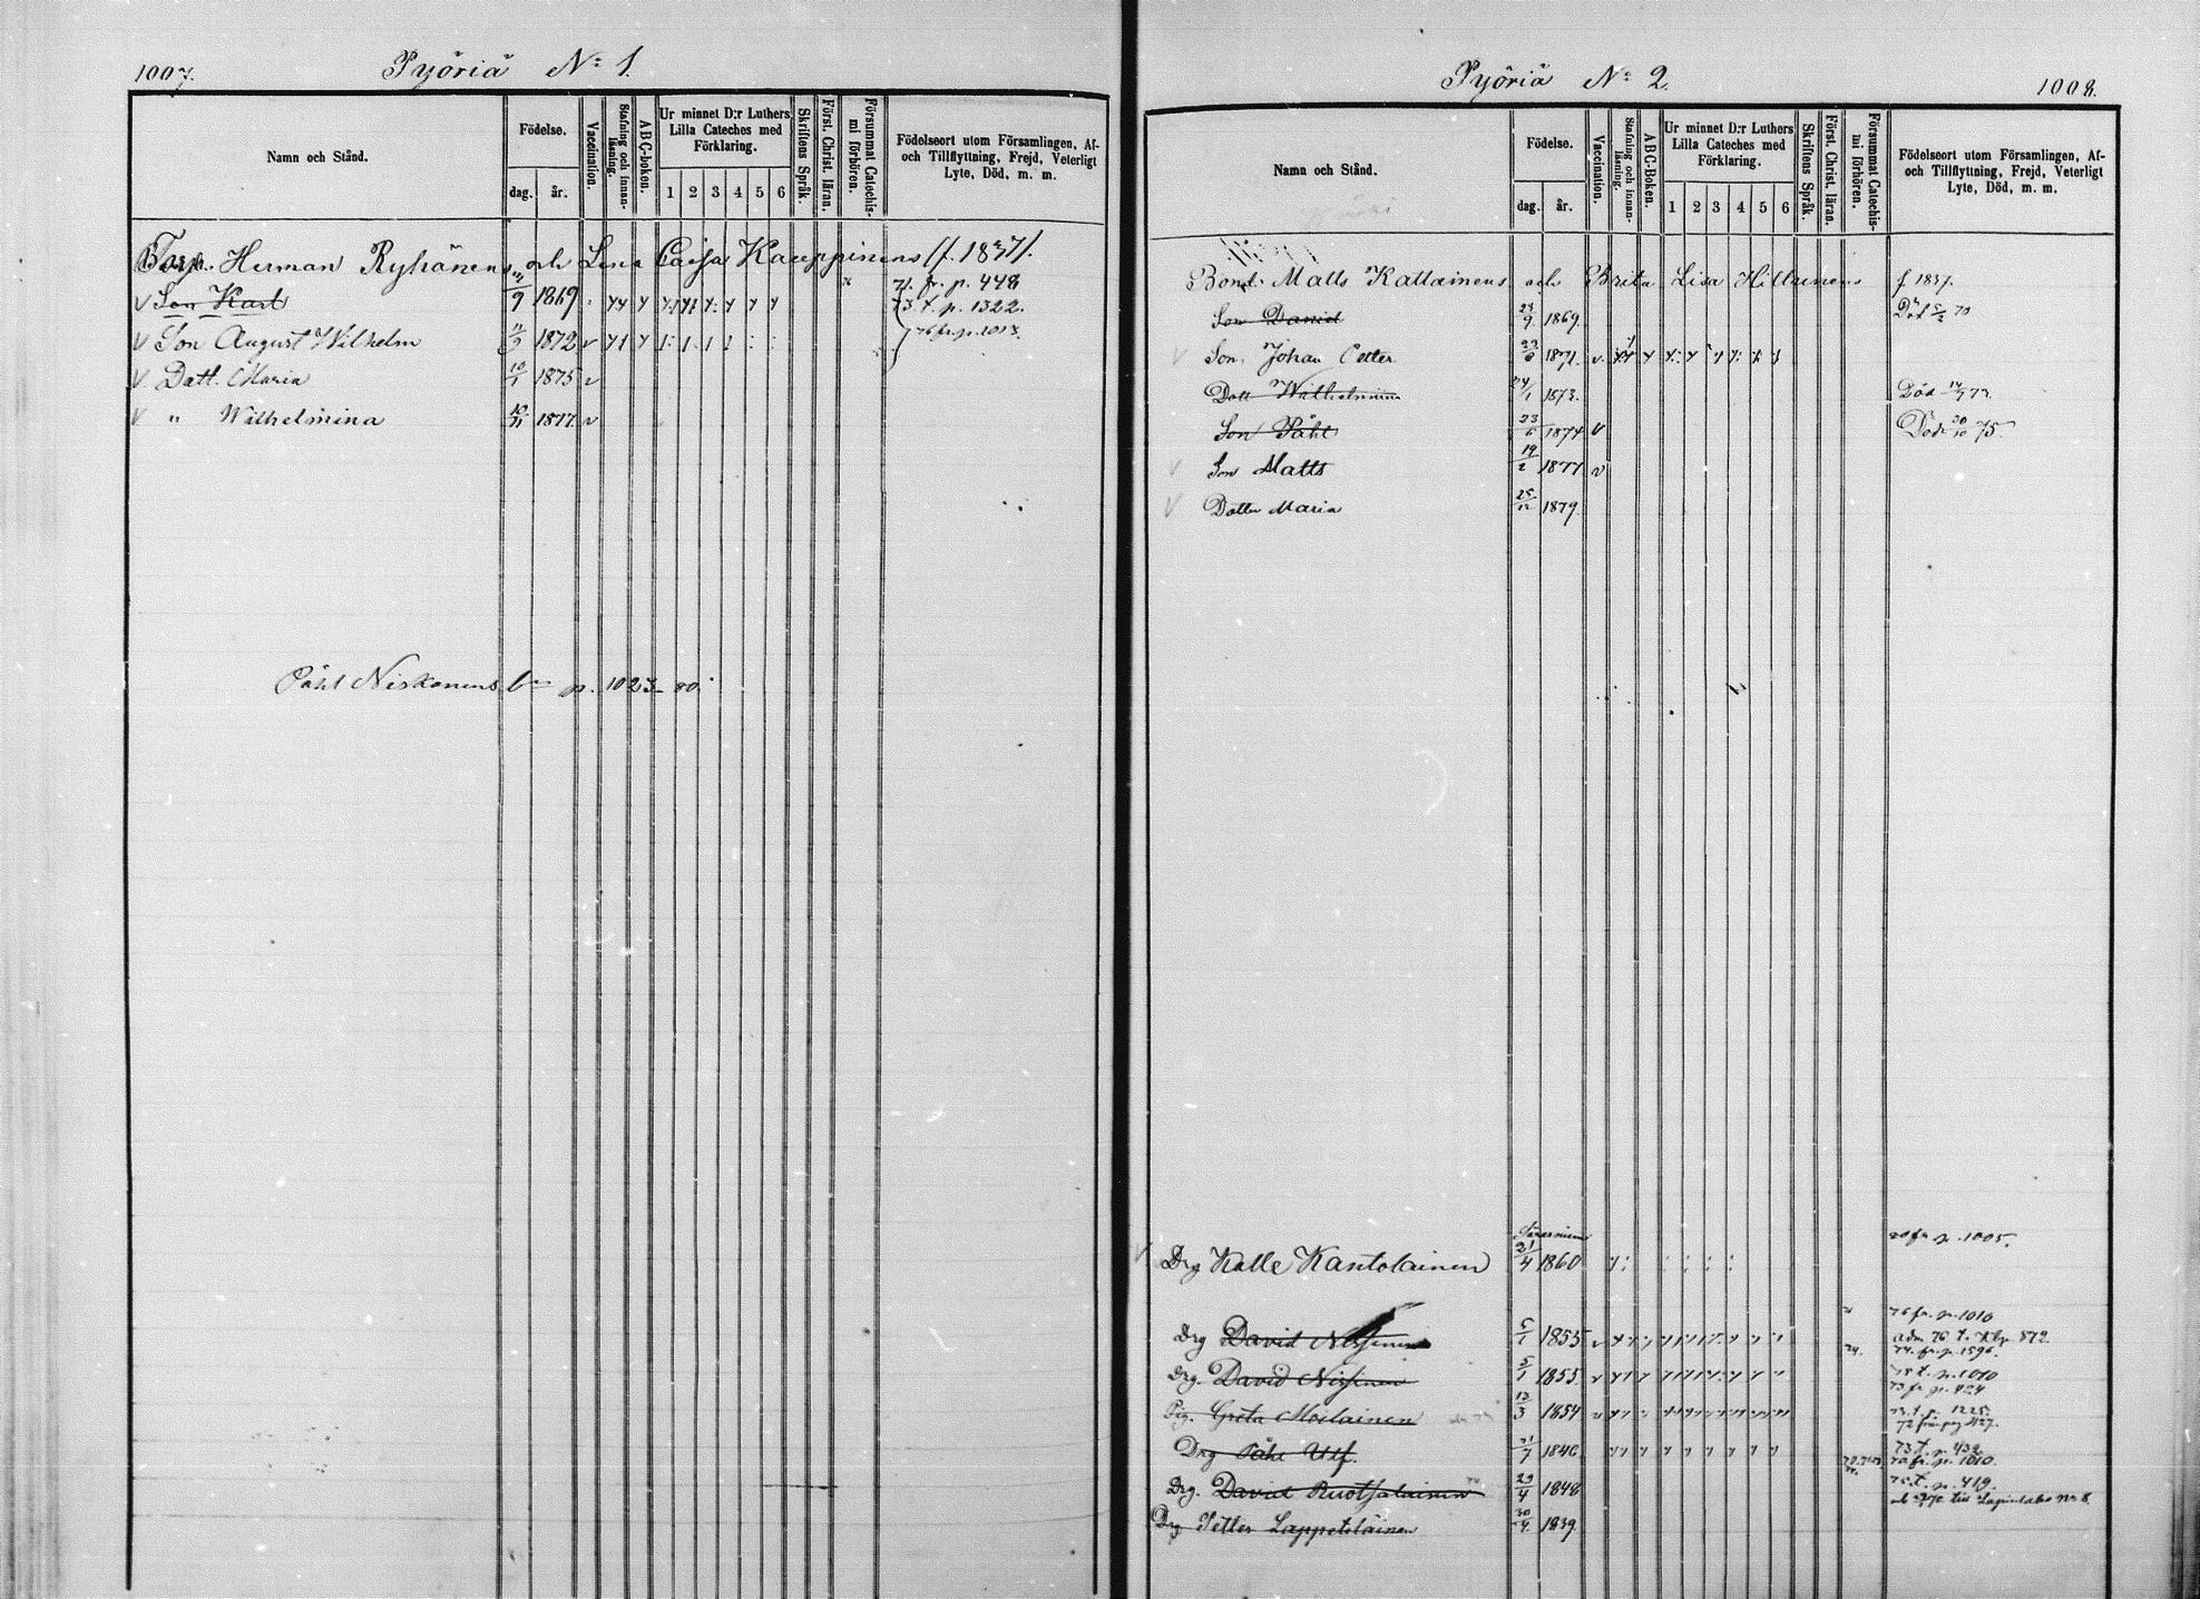 1007.
Pyöriä No 1.
Namn och Stånd.
Födelse.
dag.
år.
Vaccination.
Stafning och innan-läsning.
ABC-boken.
Ur minnet D:r Luthers Lilla Cateches med Förklaring.
1 2 3 4 5 6
Skriftens Språk.
Först. Christ. läran.
Försummat Catechis-mi förhören.
Födelseort utom Församlingen, Af- och Tillflyttning, Frejd, Veterligt Lyte, Död, m. m.
Herman Ryhänens och Lena Caisa Kauppinens (f. 1837).
71. fr. p. 448
V Son Karl 9 1869
73. t. p. 1322.
76 fr. p. 1013.
V Son August Wilhelm 1872 v
V Dott. Maria 1875 v
V " Wilhelmina 1877 v
Påhl Niskanens bn p. 1023 80.
Pyöriä No 2.
1008.
Namn och Stånd.
Födelse.
dag.
år.
Vaccination.
Stafning och innan-läsning.
ABC-Boken.
Ur minnet D:r Luthers Lilla Cateches med Förklaring.
1 2 3 4 5 6
Skriftens Språk.
Först. Christ. läran.
Försummat Catechis-mi förhören.
Födelseort utom Församlingen, Af- och Tillflyttning, Frejd, Veterligt Lyte, Död, m. m.
Bond. Matts Kattainens och Brita Lisa Hiltunens f. 1837.
Son Daniel 23/9 1869. Död 70
Son. Johan Petter 1871. v
Dott Wilhelmina 24/1 1873. Död 73
Son Påhl 23/5 1874 v Död 30/10 75.
V Son Matts 19/2 1877 v
V Dotter Maria 25/12 1879.
80 fr p. 1005.
Drg Kalle Kantolainen 21/4 1860
76 fr. p. 1010
Drg David Nissinen 5/1 1855 v
74. fr. p. 1596.
Drg. David Nissinen 5/1 1855. v 75 t. p. 1010
73 fr p. 424
Pig. Greta Moilainen 13/3 1854 v 73. t. p. 1225.
Drg Påhl Ulf. 21/7 1846 73 t. p. 432
72 fr. p. 1010.
Drg. David Ruotsalainen 29/4 1848 75. t. p. 419.
Drg Petter Lappeteläinen 30/4 1839.